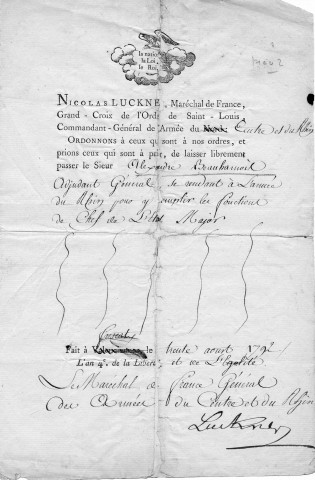 la nation
la Loi,
le Roi.
NICOLAS LUCKNE, Maréchal de France,
Grand-Croix de l'Ordre de Saint-Louis
Commandant-Général de l'Armée du Nord. Centre et du Rhin
ORDONNONS à ceux qui sont à nos ordres, et
prions ceux qui sont à prier, de laisser librement
passer le Sieur Alexandre Beauharnois
Adjudant Général se rendant à L'armée
du Rhin pour y remplir les fonctions
de Chef de L'état Major
Fait à le trente aoust 1792
L'an 4e. de la Liberté, et de L'Egalité
Le Maréchal de france Général
des Armées du Centre et du Rhin
Luckner